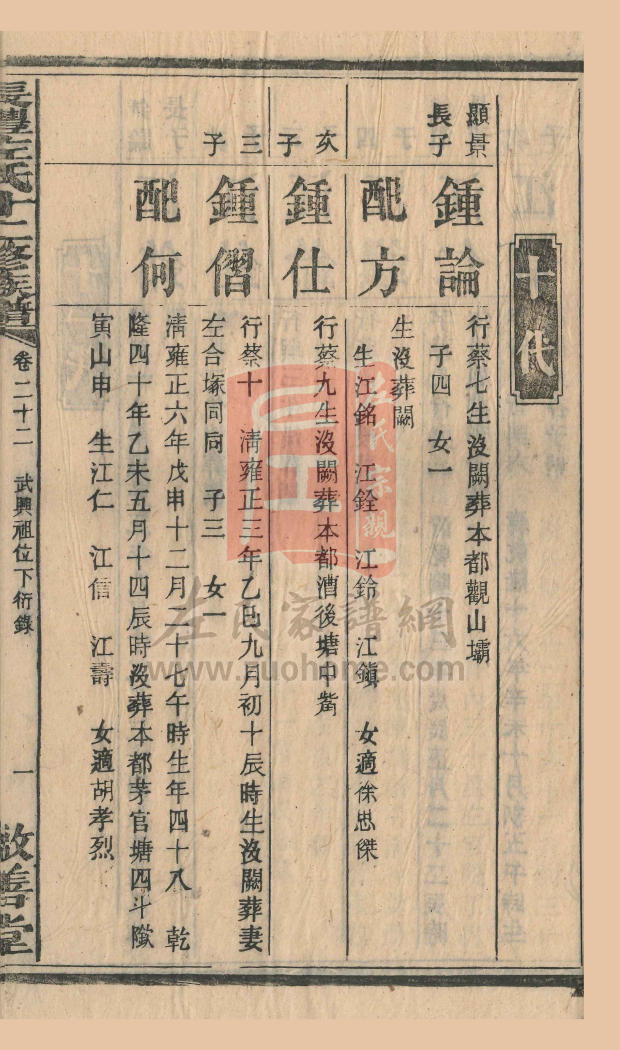 十代
顯景
長子
鍾論
行蔡七生沒闕葬本都觀山壩
子四 女一
配方
生沒葬闕
生江銘 江銓 江鈴 江鎮 女適徐思傑
次子
鍾仕
行蔡九生沒闕葬本都漕後塘中嶲
三子
鍾僧
行蔡十 清雍正三年乙巳九月初十辰時生沒闕葬妻
左合塚同向 子三 女一
配何
清雍正六年戊申十二月二十七午時生年四十八 乾
隆四十年乙未五月十四辰時沒葬本都茅官塘四斗墩
寅山申 生江仁 江信 江壽 女適胡孝烈
長豐左氏十二修族譜
卷二十二
武興祖位下衍錄
一
敬善堂
左氏宗親
左氏家譜網
www.zuohome.com